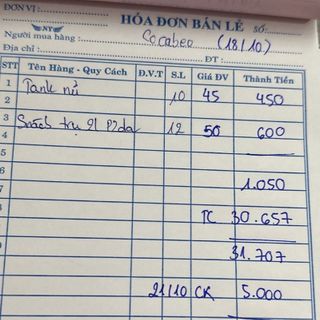 ĐƠN VỊ:
HÓA ĐƠN BÁN LẺ SỐ:
NT
Người mua hàng: Cocobeo (18/10)
Địa chỉ: ĐT:
STT Tên Hàng - Quy Cách Đ.V.T S.L Giá ĐV Thành Tiền
1 10 45 450
2
3 12 50 600
4
1.050
TC 30.657
31.707
21/10 CK 5.000